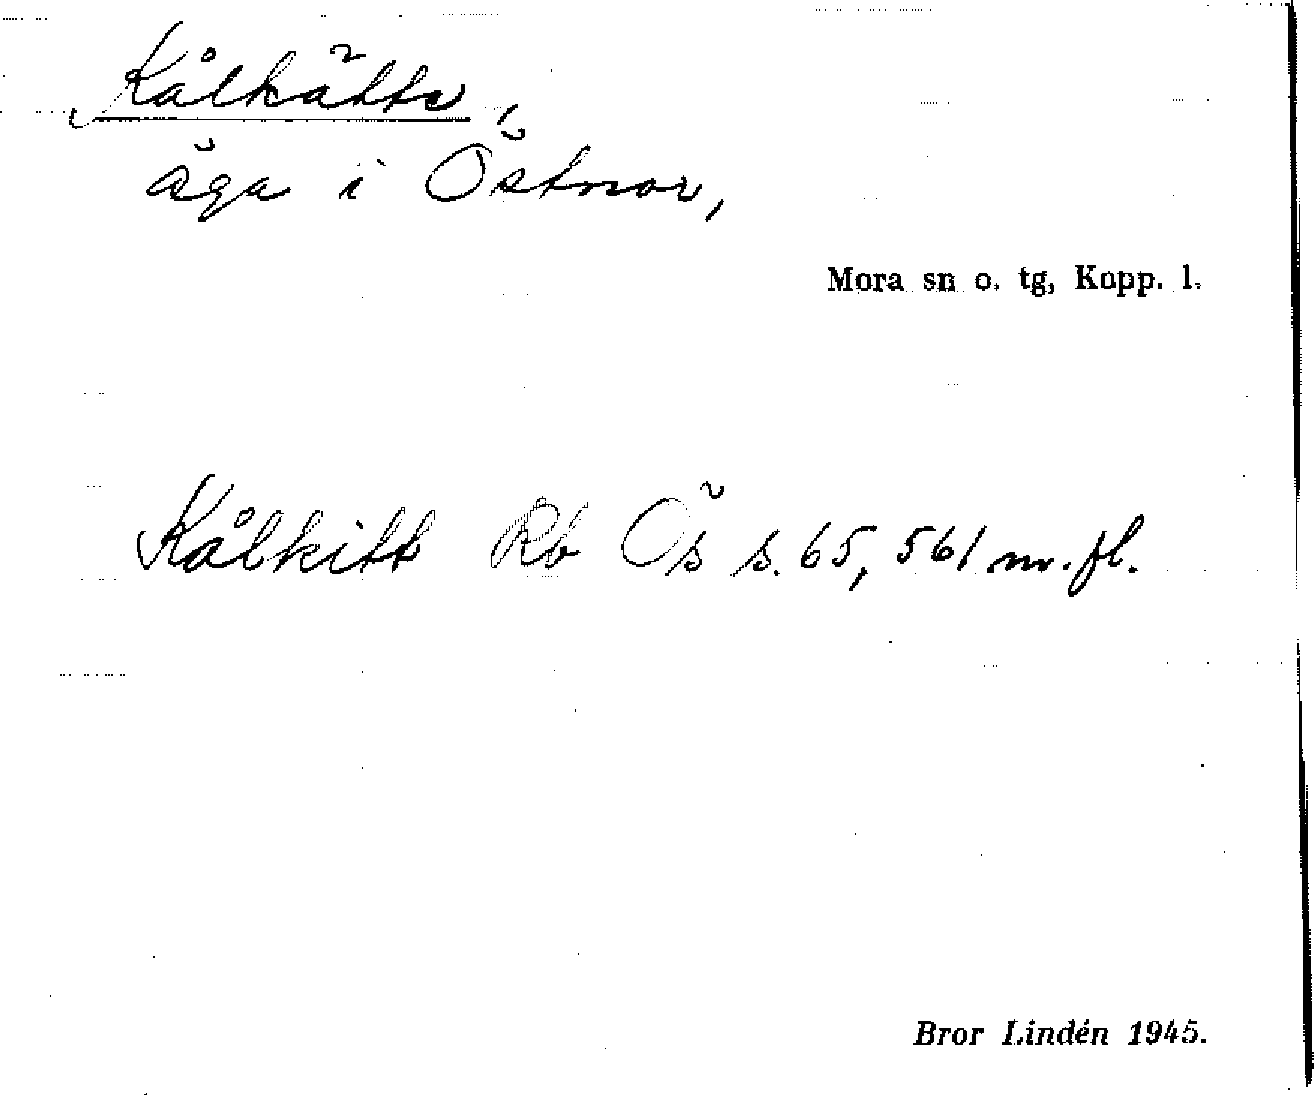 Kålkätte,
äga i Östnor,
Mora sn o. tg, Kopp. l.
Kålkitt Rb Ös s. 65, 561 m. fl.
Bror Lindén 1945.